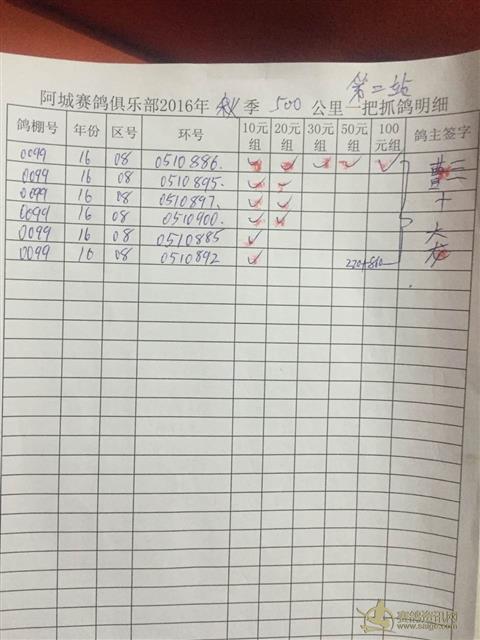 第二站
阿城赛鸽俱乐部2016年 秋 季 500 公里一把抓鸽明细
鸽棚号 年份 区号 环号 10元组 20元组 30元组 50元组 100元组 鸽主签字
0099 16 08 0510886. ✓ ✓ ✓ ✓ ✓
0099 16 08 0510895. ✓ ✓
0099 16 08 0510897. ✓ ✓
0099 16 08 0510900. ✓ ✓
0099 16 08 0510885 ✓
0099 16 08 0510892 ✓
十
大
赛鸽资讯网
www.saige.com